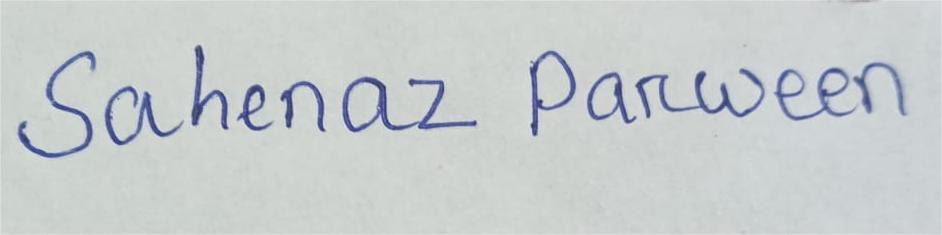 Sahenaz Parween